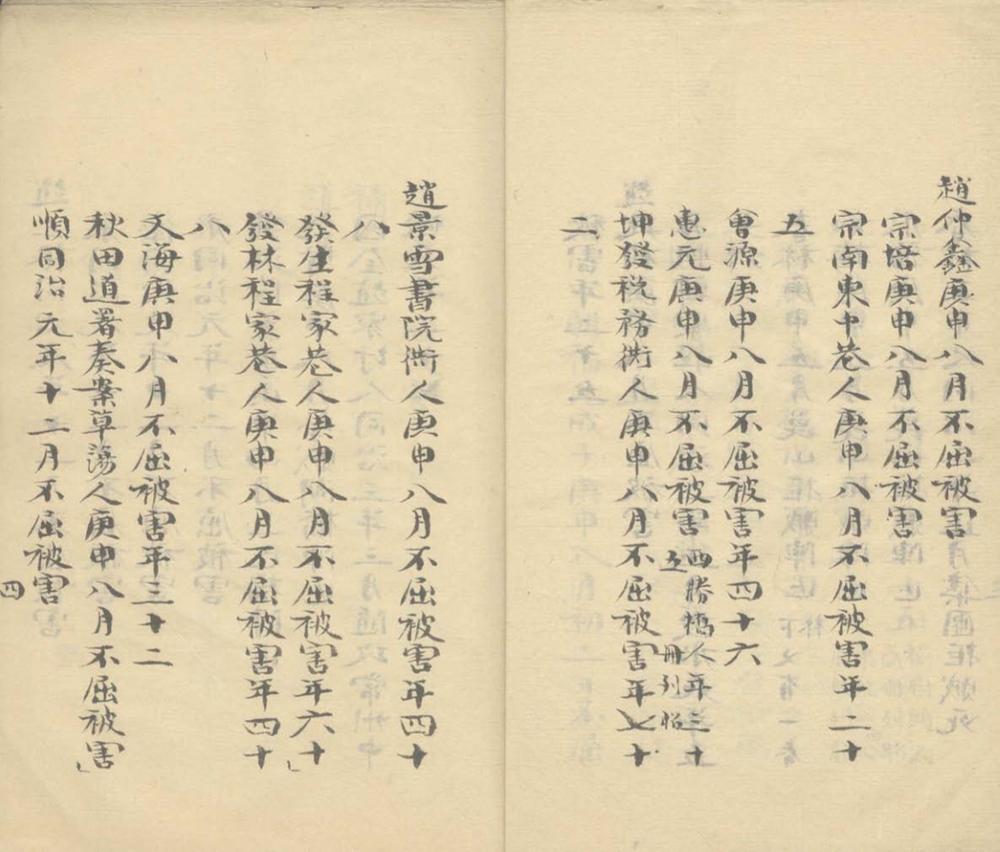 趙仲鑫庚申八月不屈被害
宗培庚申八月不屈被害
宗南東中巷人庚申八月不屈被害年二十
五
會源庚申八月不屈被害年四十六
惠元庚申八月不屈被害西勝橋人年三十五冊列恤
坤發稅務衖人庚申八月不屈被害年七十
二
趙景雪書院衖人庚申八月不屈被害年四十
八
發生程家巷人庚申八月不屈被害年六十
發林程家巷人庚申八月不屈被害年四十
八
文海庚申八月不屈被害年三十二
秋田道署奏案草蕩人庚申八月不屈被害
順同治元年十二月不屈被害
四